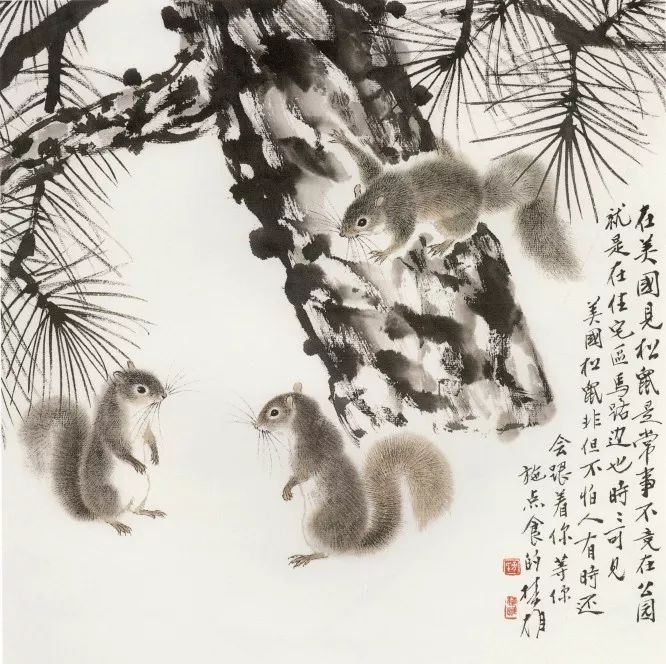 在美國見松鼠是常事不竟在公園
就是在住宅區馬路边也時:可見
美國松鼠非但不怕人有時还
会跟着你等你
施点食的